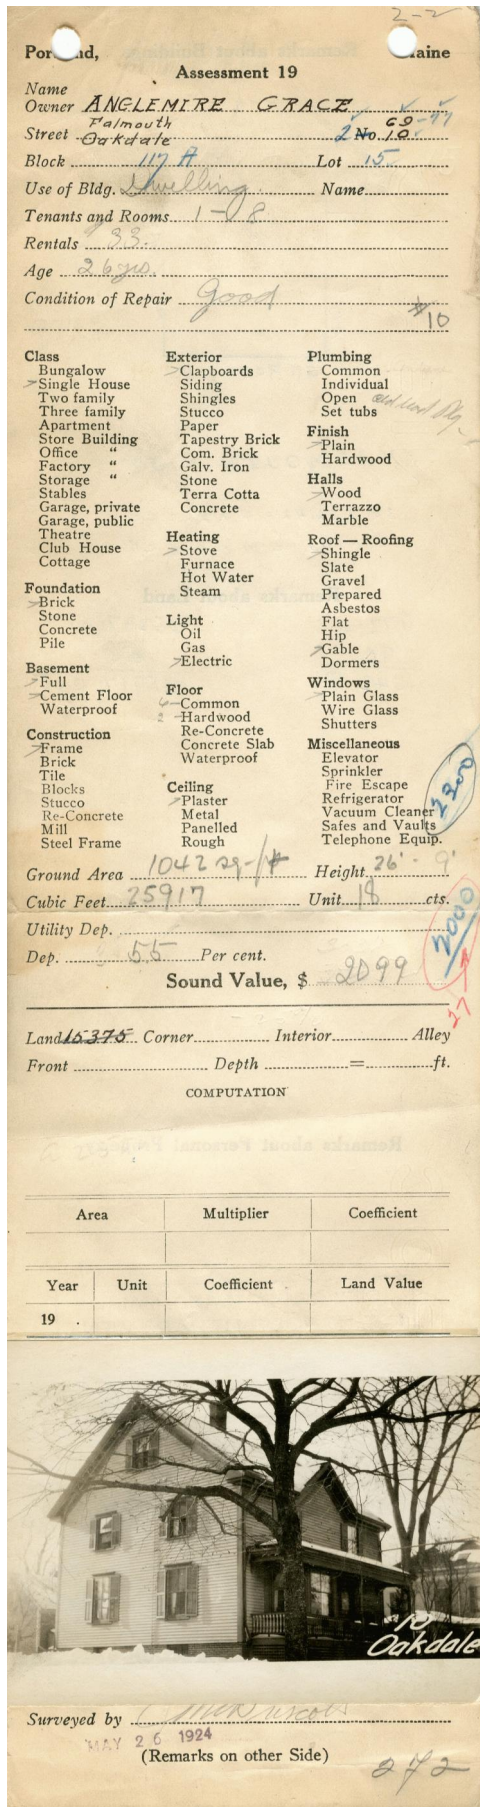 2-2
Portland, Maine
Assessment 19
Name
Owner ANGLEMIRE GRACE
Falmouth 69-77
Street Oakdale 2 No 10
Block 117 A Lot 15
Use of Bldg. Dwelling Name
Tenants and Rooms 1-8
Rentals 33.
Age 26 yrs.
Condition of Repair Good
10
Class
Bungalow
Single House
Two family
Three family
Apartment
Store Building
Office "
Factory "
Storage "
Stables
Garage, private
Garage, public
Theatre
Club House
Cottage
Foundation
Brick
Stone
Concrete
Pile
Basement
Full
Cement Floor
Waterproof
Construction
Frame
Brick
Tile
Blocks
Stucco
Re-Concrete
Mill
Steel Frame
Exterior
Clapboards
Siding
Shingles
Stucco
Paper
Tapestry Brick
Com. Brick
Galv. Iron
Stone
Terra Cotta
Concrete
Heating
Stove
Furnace
Hot Water
Steam
Light
Oil
Gas
Electric
Floor
6 Common
2 Hardwood
Re-Concrete
Concrete Slab
Waterproof
Ceiling
Plaster
Metal
Panelled
Rough
Plumbing
Common
Individual
Open
Set tubs
Finish
Plain
Hardwood
Halls
Wood
Terrazzo
Marble
Roof — Roofing
Shingle
Slate
Gravel
Prepared
Asbestos
Flat
Hip
Gable
Dormers
Windows
Plain Glass
Wire Glass
Shutters
Miscellaneous
Elevator
Sprinkler
Fire Escape
Refrigerator
Vacuum Cleaner
Safes and Vaults
Telephone Equip.
2300
Ground Area 1042 sq-ft Height 26' - 9'
Cubic Feet 25917 Unit 18 cts.
Utility Dep.
2000
Dep. 55 Per cent.
Sound Value, $ 2099
27
Land 15375 Corner Interior Alley
Front Depth = ft.
COMPUTATION
Remarks about Personal Property
Area Multiplier Coefficient
Year Unit Coefficient . Land Value
19 .
10
Oakdale
Surveyed by
MAY 26 1924
(Remarks on other Side)
272